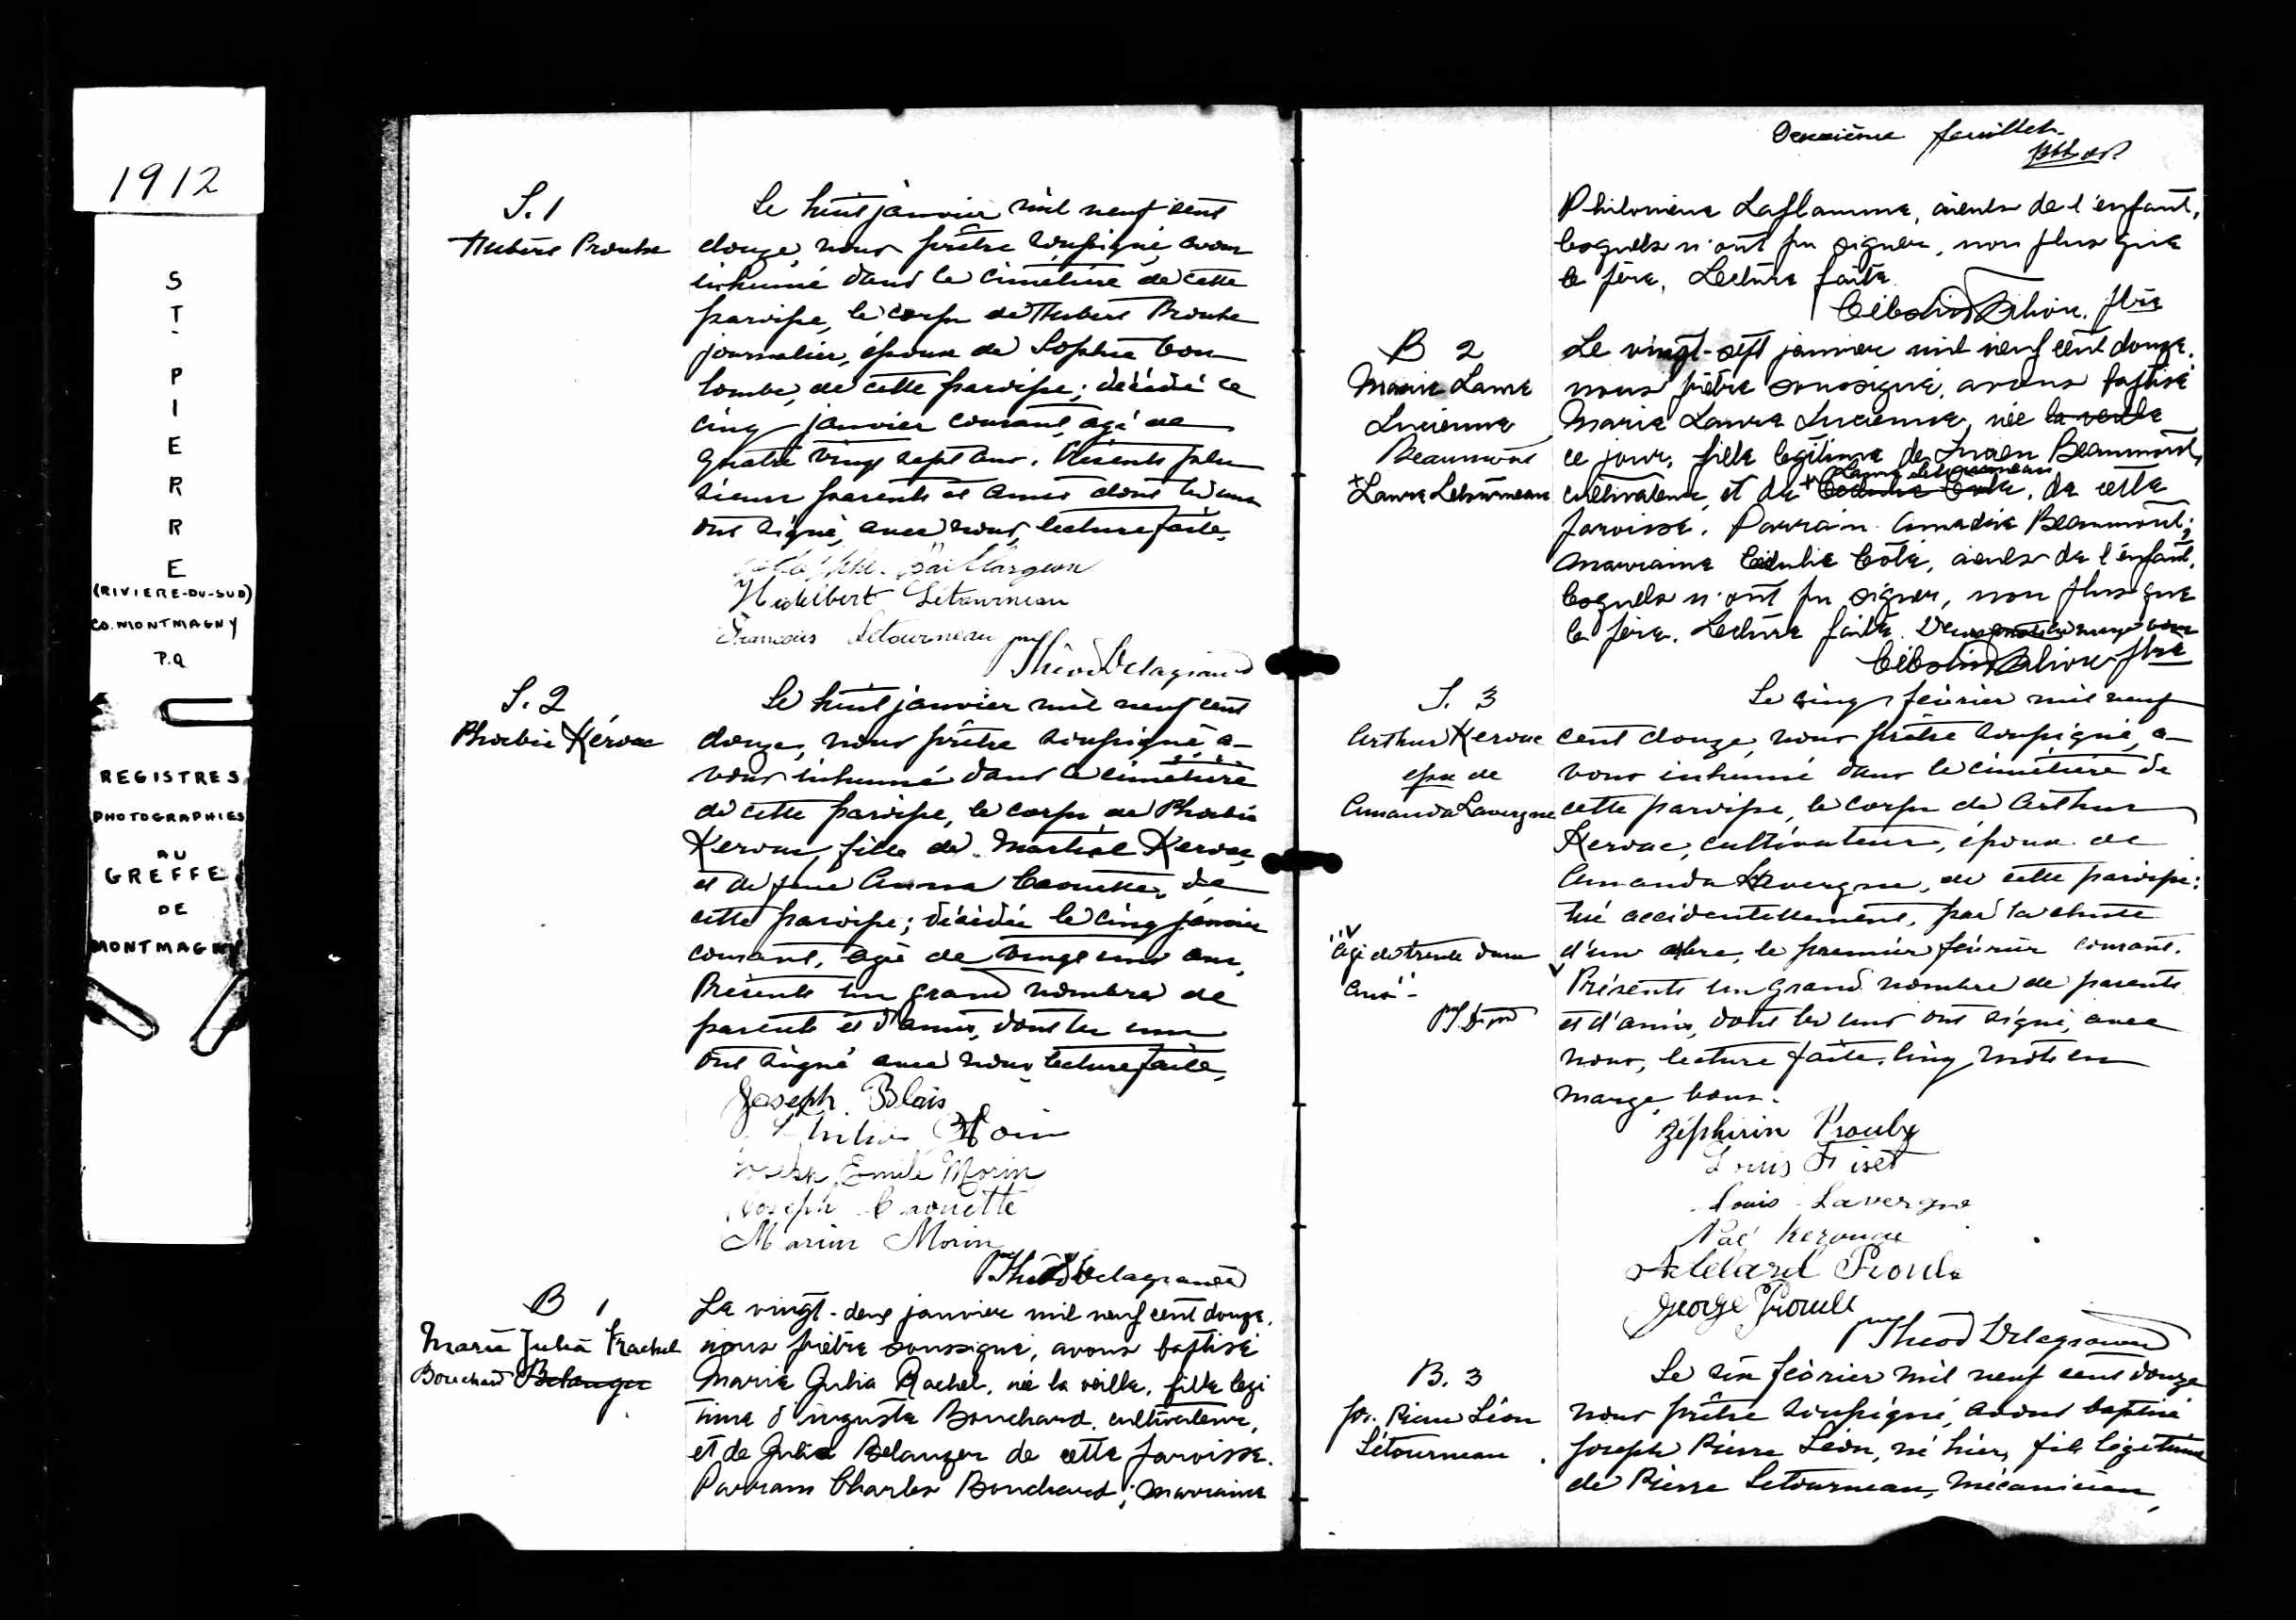 1912
ST-PIERRE
(RIVIERE-DU-SUD)
CO. MONTMAGNY
P.Q
REGISTRES
PHOTOGRAPHIES
AU
GREFFE
DE
MONTMAGNY
S. 1
Hubert Proulx
Le huit janvier mil neuf cent
douze, nous prêtre soussigné, avons
inhumé dans le cimetière de cette
paroisse, le corps de Hubert Proulx
journalier, époux de Sophie Cou
lombe, de cette paroisse; décédé le
cinq janvier courant, agé de
quatre vingt sept ans. Présents plu
sieurs parents et amis dont les uns
ont signé, avec nous, lecture faite.
Baillargeon
Hidelbert Létourneau
François Letourneau
Théod Delagrave
S. 2
Phoebée Kérouac
Le huit janvier mil neuf cent
douze, nous prêtre soussigné, a-
vons inhumé dans le cimetière
de cette paroisse, le corps de Phoebée
Kerouac, fille de Martial Kerouac,
et de feue Anna Caouette, de
cette paroisse; décédée le cinq janvier
courant, agée de vingt uns ans.
Présents un grand nombre de
parents et d'amis, dont les uns
ont signé avec nous, lecture faite,
Joseph Blais
Morin
Joseph Emile Morin
Joseph Caouette
Morin
Ptre Théod Delagrave
B 1
Marie Julia Rachel
Bouchard Belanger
Le vingt-deux janvier mil neuf cent douze,
nous prêtre soussigné, avons baptisé
Marie Julia Rachel, née la veille, fille légi
time d'Auguste Bouchard, cultivateur,
et de Julia Belanger de cette paroisse.
Parrain Charles Bouchard; marraine
Deuxième feuillet
Philomène Laflamme, aieuls de l'enfant,
lesquels n'ont pu signer, non plus que
le père. Lecture faite.
Ptre
B 2
Marie Laure
Lucienne
Beaumont
+ Laure Letourneau
Le vingt-sept janvier mil neuf cent douze,
nous prêtre soussigné, avons baptisé
Marie Laure Lucienne, née la veille
ce jour, fille légitime de Lucien Beaumont,
Laure Letourneau
cultivateur, et de + Cédulie Coté, de cette
paroisse. Parrain Amédée Beaumont;
marraine Cédulie Coté, aieuls de l'enfant,
lesquels n'ont pu signer, non plus que
le père. Lecture faite.
Ptre
S. 3
Arthur Kerouac
epx de
Amanda Lavergne
Agé de trente deux
ans -
Le cinq février mil neuf
cent douze, nous prêtre soussigné, a-
vons inhumé dans le cimetière de
cette paroisse, le corps de Arthur
Kerouac, cultivateur, époux de
Amanda Lavergne, de cette paroisse:
tué accidentellement, par la chute
d'un arbre, le premier février courant.
Présents un grand nombre de parents
et d'amis, dont les uns ont signé, avec
nous, lecture faite. Cinq mots en
marge, bons.
Zéphirin Proulx
Louis Fiset
Louis Lavergne
Noé Kerouac
Adelard Proulx
George Proulx
Ptre Théod Delagrave
B. 3
Jos. Pierre Léon
Létourneau
Le six février mil neuf cent douze
nous prêtre soussigné, avons baptisé
Joseph Pierre Léon, né hier, fils légitime
de Pierre Letourneau, mécanicien,